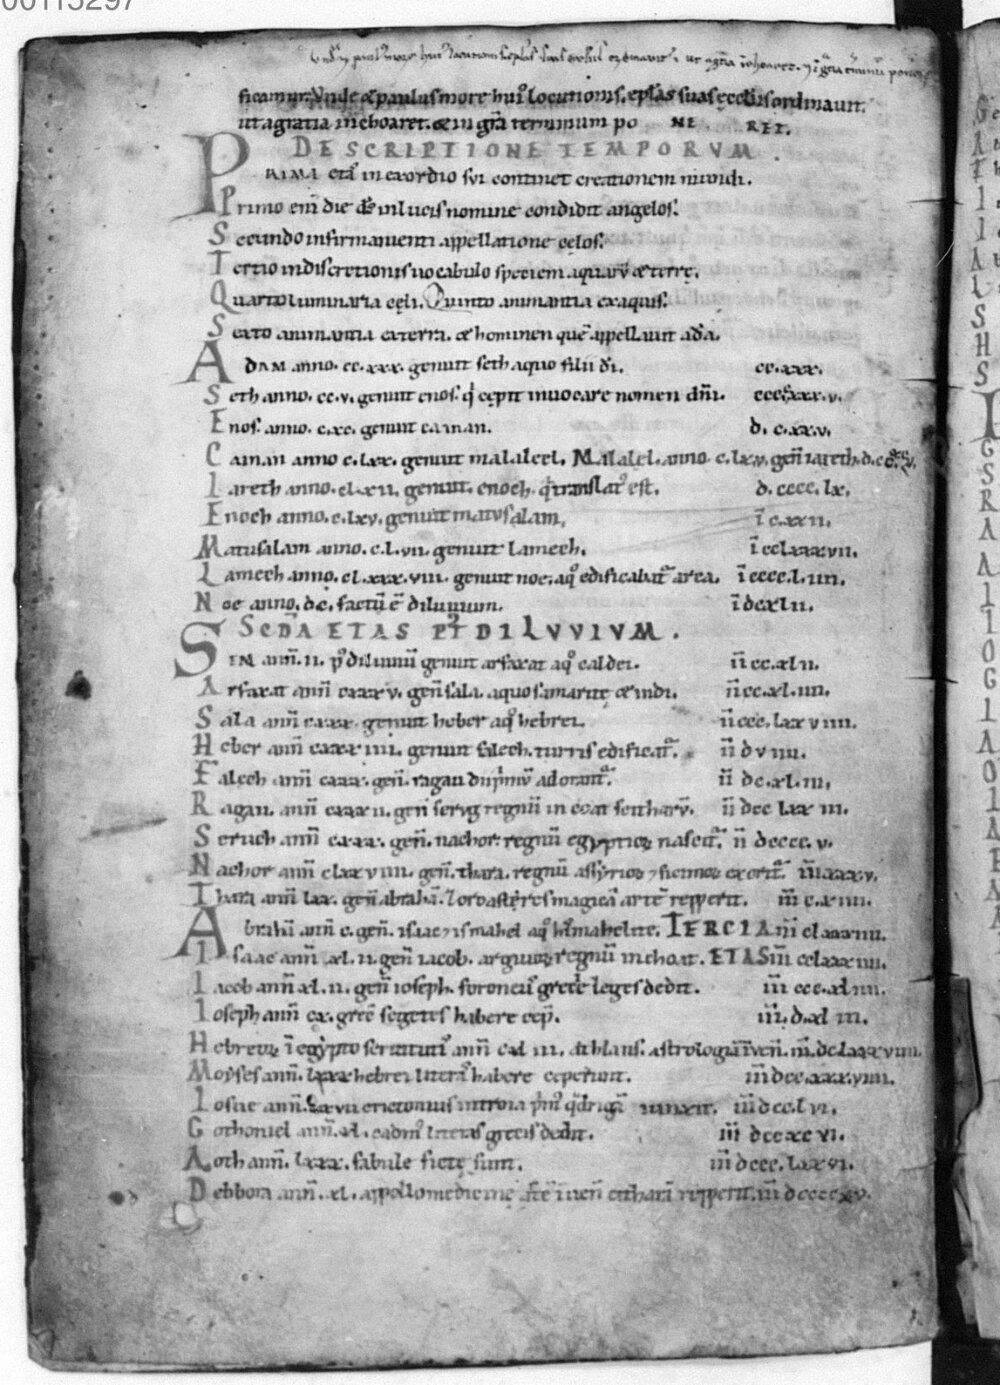 00115297
ficamur. Unde & paulus more hui' locutionis. eplas suas ecclis ordinauit.
ut a gratia inchoaret. & in gra terminum po NE RET.
DESCRIPTIONE TEMPORVM.
PRIMA etas in exordio sui continet creationem mundi.
Primo eni die ds in lucis nomine condidit angelos.
Secundo in firmamenti appellatione celos.
Tertio in discretionis uocabulo speciem aquaru & terre.
Quarto luminaria celi. Quinto animantia ex aquis.
Sexto animantia ex terra. & hominen que appellauit ada.
ADAM anno. cc.xxx. genuit seth a quo filii di. cc.xxx.
Seth anno. cc.v. genuit enos. q cepit inuocare nomen dni. cccc.xxx.v.
Enos. anno. c.xc. genuit cainan. d.c.xx.v.
Cainan anno c.lxx. genuit malaleel. Malalel. anno. c.lxv. gen iareth. d.cc
Iareth anno. clxii. genuit. enoch. q translat' est. d.cccc.lx.
Enoch anno. c.lxv. genuit matusalam. i c.xxii.
Matusalam anno. c.l.vii. genuit lamech. i cclxxxvii.
Lamech anno. cl.xxx.viii. genuit noe. a q edificabit arca. i cccc.l.iiii.
Noe anno. dc. factu e diluuium. i dcxlii.
SCDA ETAS PT DILVVIVM.
SEM ann. ii. p diluuiu genuit arfaxat a q caldei. ii cc.xl.ii.
Arfaxat ann cxxxv. gen sala. a quo samarite & indi. ii cc.xl.iiii.
Sala ann cxxx. genuit heber a q hebrei. ii ccc.lxxviiii.
Heber ann cxxxiiii. genuit falech. turris edificat. ii dviiii.
Falech ann cxxx. gen. ragau dii primu adorant. ii dc.xl.iii.
Ragau. ann cxxxii. gen serug regnu in choat scithary. ii dcc lxx iii.
Seruch ann cxxx. gen. nachor. regnu egyptioru nascit. ii dcccc.v.
Nachor ann clxxviiii. gen. thara. regnu assyrioru 7 siciniorum exorit. iii.xxx.v.
Thara ann lxx. gen abraha. Zoroastres magica arte repperit. iii c.v iiii.
Abraha ann c. gen. isaac 7 ismahel a q hismahelite. TERCIA iii clxxxiiii.
Isaac ann xl.ii. gen iacob. argiuoru regnu inchoat. ETAS iii cclxxxiiii.
Iacob ann xl.ii. gen ioseph. foroneus grecie leges dedit. iii ccc.xliiii.
Ioseph ann cx. grece segetes habere cep. iii.d.xl iii.
Hebreoru i egypto seruitutis ann cxl iiii. athlans. astrologia inuen. iii.dclxxxviiii.
Moyses ann. lxxx hebrei litteras habere ceperunt. iii dcc.xxx.viiii.
Iosue ann. xxvii erictonius in troia prim' quadriga iunxit. iii dcc.l vi.
Gothoniel ann. xl. cadm' litteras grecis dedit. iii dccxc vi.
Aoth ann. lxxx. fabule ficte sunt. iii dccc.lxxvi.
Debbora ann. xl. appollo medicine arte inuen cithara repperit. iii dccccxv.